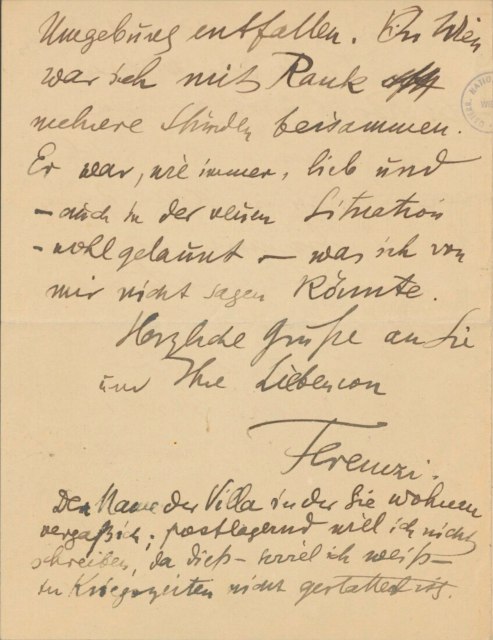 Umgebung entfallen. In Wien
war ich mit Rank
mehrere Stunden beisammen.
Er war, wie immer, lieb und
– auch in der neuen Situation
– wohlgelaunt – was ich von
mir nicht sagen könnte.
Herzliche Grüße an Sie
und Ihre Lieben von
Ferenczi.
Den Name der Villa in der Sie wohnen
vergaß ich; postlagernd will ich nicht
schreiben, da dieß – soviel ich weiß –
in Kriegszeiten nicht gestattet ist.